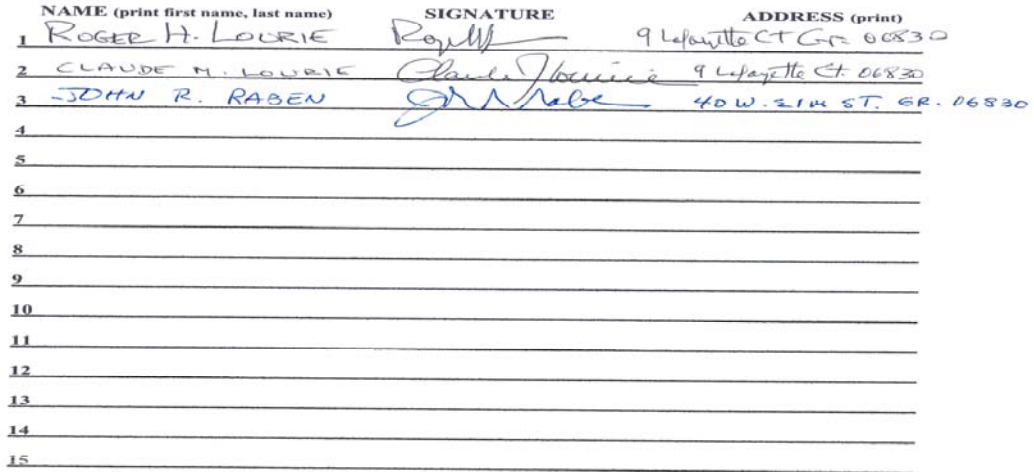 NAME (print first name, last name) SIGNATURE ADDRESS (print)
1 ROGER H. LOURIE 9 Lafayette CT Gr. 06830
2 CLAUDE M. LOURIE Claude Lourie 9 Lafayette Ct. 06830
3 JOHN R. RABEN 40 W. ST. GR. 06830
4
5
6
7
8
9
10
11
12
13
14
15